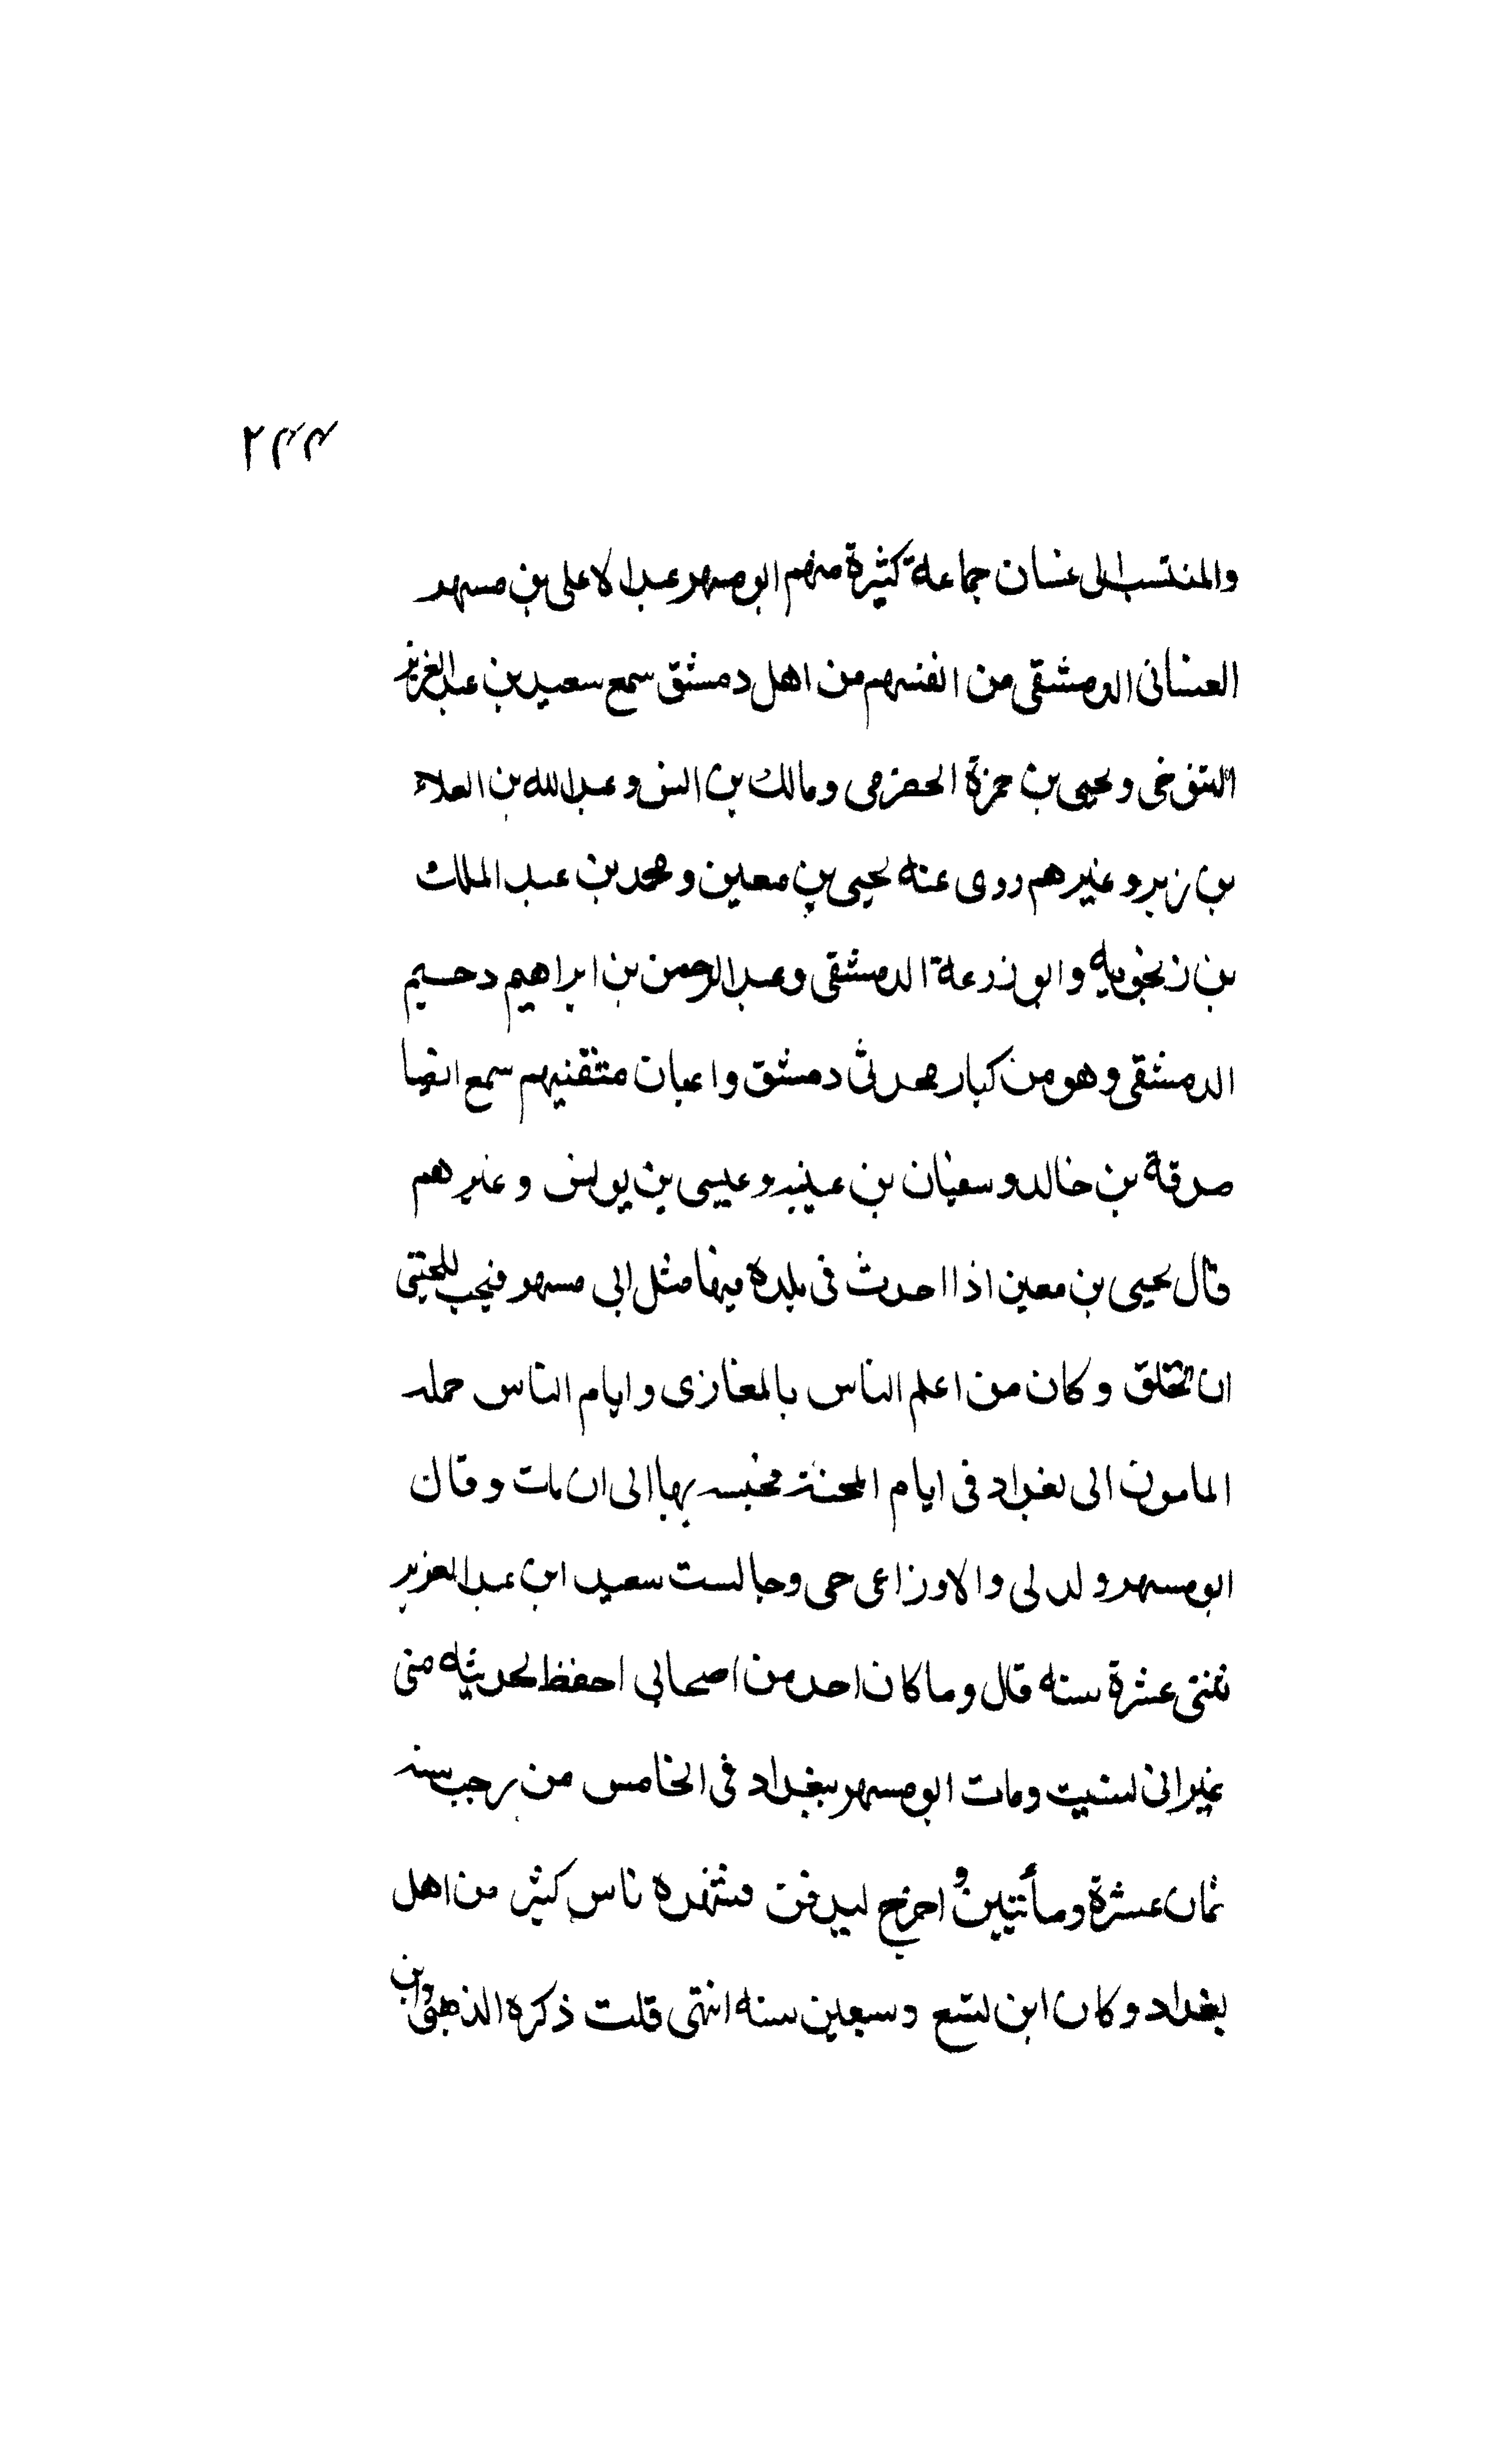 ٢٤٣
والمنتسب الى غسان جماعة كثيرة منهم ابو مسهر عبد الاعلى بن مسهر
الغساني الدمشقي من انفسهم من اهل دمشق سمع سعيد بن عبد العزيز
التنوخي ويحيى بن حمزة الحضرمي ومالك بن انس وعبد الله بن العلاء
بن زبر وغيرهم روى عنه يحيى بن معين ومحمد بن عبد الملك
بن زنجويه وابو زرعة الدمشقي وعبد الرحمن بن ابراهيم دحيم
الدمشقي وهو من كبار محدثي دمشق واعيان متقنيهم سمع ايضا
صدقة بن خالد وسفيان بن عيينه وعيسى بن يونس وغيرهم
قال يحيى بن معين اذا احدث في بلدة فيها مثل ابي مسهر فيجب للحيتي
ان تحلق وكان من اعلم الناس بالمغازي وايام الناس حمله
المامون الى بغداد في ايام المحنة فحبسه بها الى ان مات وقال
ابو مسهر ولد لي والاوزاعي حي وجالست سعيد ابن عبد العزيز
ثنتي عشرة سنه قال وما كان احد من اصحابي احفظ لحديثه مني
غير اني نسيت ومات ابو مسهر ببغداد في الخامس من رجب سنه
ثمان عشرة ومأتين واخرج ليدفن فشهده ناس كثير من اهل
بغداد وكان ابن تسع وسبعين سنه انتهى قلت ذكره الذهبي وابن